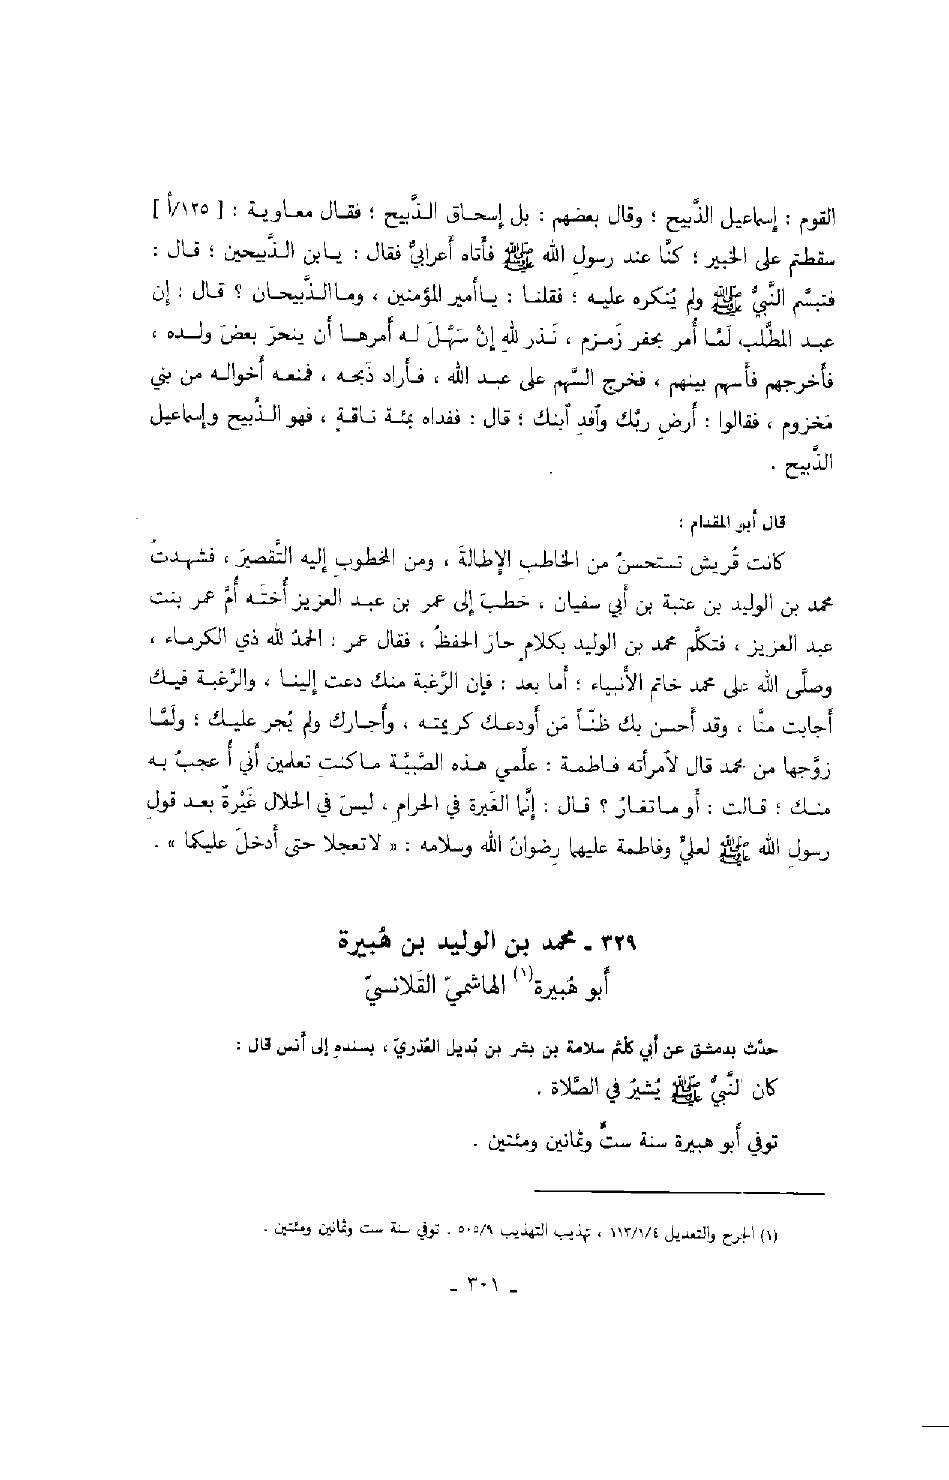 القوم : إسماعيل الذَّبيح ؛ وقال بعضهم : بل إسحاق الـذَّبيح ؛ فقـال معـاوية : [ ١٢٥/أ ]
سقطتم على الخبير ؛ كنَّا عند رسولِ الله ﷺ فأتاه أعرابيٌّ فقال : يـابن الـذَّبيحين ؛ قـال :
فتبسَّم النَّبيُّ ﷺ ولم يُنكره عليه ؛ فقلنـا : يـاأمير المؤمنين ، ومـاالـذَّبيحان ؟ قـال : إن
عبـد المطَّلب لَمَّا أُمر بحفر زَمـزم ، نَـذر للهِ إنْ سَهَّلَ لـه أمرهـا أن ينحرَ بعضَ ولـده ،
فأخرجهم فأسهم بينهم ، فخرج السَّهم على عبـد الله ، فـأراد ذَبحـه ، فمنعـه أخوالـه من بني
مَخزوم ، فقالوا : أَرضِ ربَّك وآفدِ آبنك ؛ قال : ففداه بمئة نـاقـةٍ ، فهو الـذَّبيح وإسماعيل
الذَّبيح .
قال أبو المقدام :
كانت قُريش تستحسنُ من الخاطبِ الإطالةَ ، ومن المخطوبِ إليه التَّقصيرَ ، فشهدتُ
محمد بن الوليد بن عتبة بن أبي سفيان ، خطبَ إلى عمر بن عبـد العزيز أُختَـه أُمَّ عمر بنت
عبد العـزيـز ، فتكلَّم محمد بن الوليد بكلامٍ حازَ الحفظَ ، فقال عمر : الحمدُ لله ذي الكبرِيـاء ،
وصلَّى الله على محمد خاتم الأنبياء ؛ أما بعد : فإن الرَّغبة منك دعت إلينـا ، والرَّغبة فيـك
أجابت منَّا ، وقد أحسن بك ظنّاً مَن أودعـك كريمتـه ، وآختارك ولم يَختر عليـك ؛ ولَمَّا
زوَّجها من محمد قال لآمرأته فـاطمـة : علِّمي هـذه الصَّبيَّـة مـاكنتِ تعلمين أني أُعجبُ بـه
منـك ؛ قـالت : أَو مـاتغـارُ ؟ قـال : إنَّما الغَيرة في الحرام ، ليسَ في الحلال غَيْرَةٌ بعـد قول
رسولِ الله ﷺ لعليٍّ وفاطمة عليهما رضوانُ الله وسلامه : « لاتعجلا حتى أَدخلَ عليكما » .
٣٢٩ ـ محمد بن الوليد بن هُبيرة
أبو هُبيرة(١) الهاشميّ القَلانسيّ
حدَّث بدمشق عن أبي كلثم سلامة بن بشر بن بُديل العُذريّ ، بسنده إلى أنس قال :
كان النَّبيُّ ﷺ يُشيرُ في الصَّلاة .
توفي أبو هبيرة سنة ستٍّ وثمانين ومئتين .
(١) الجرح والتعديل ١١٣/١/٤ ، تهذيب التهذيب ٥٠٥/٩ . توفي سنة ست وثمانين ومئتين .
ـ ٣٠١ ـ